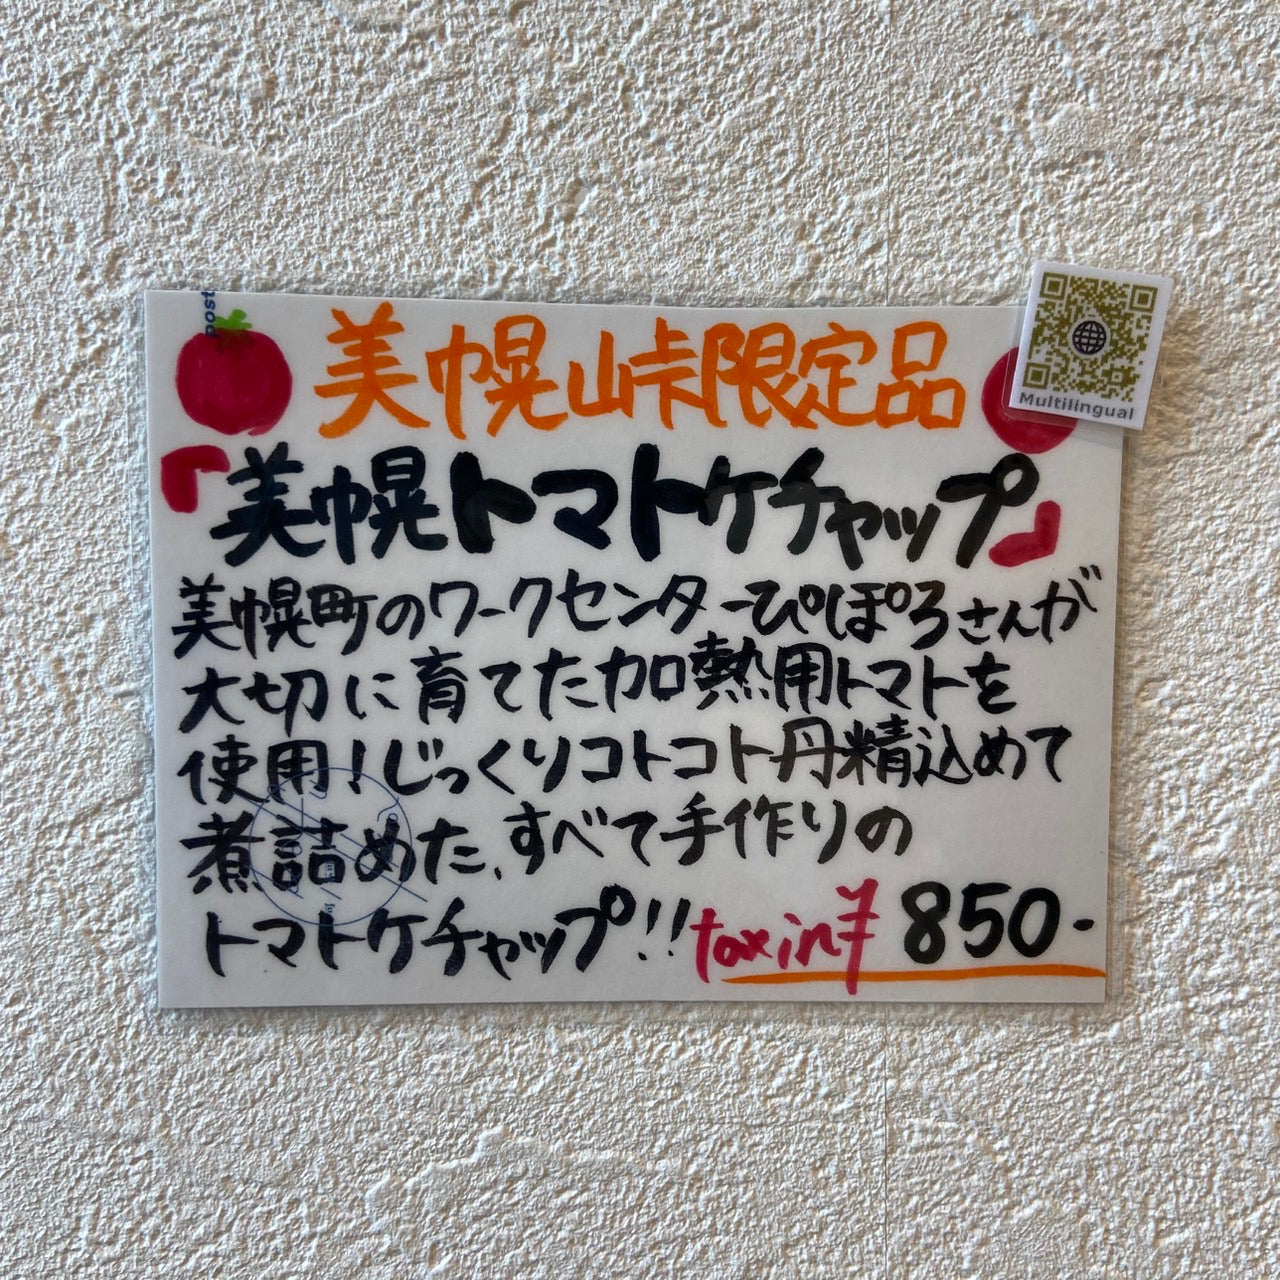 post
美幌峠限定品
Multilingual
『美幌トマトケチャップ』
美幌町のワークセンターぴぽろさんが
大切に育てた加熱用トマトを
使用!じっくりコトコト丹精込めて
煮詰めた、すべて手作りの
トマトケチャップ!! tax in ¥ 850-